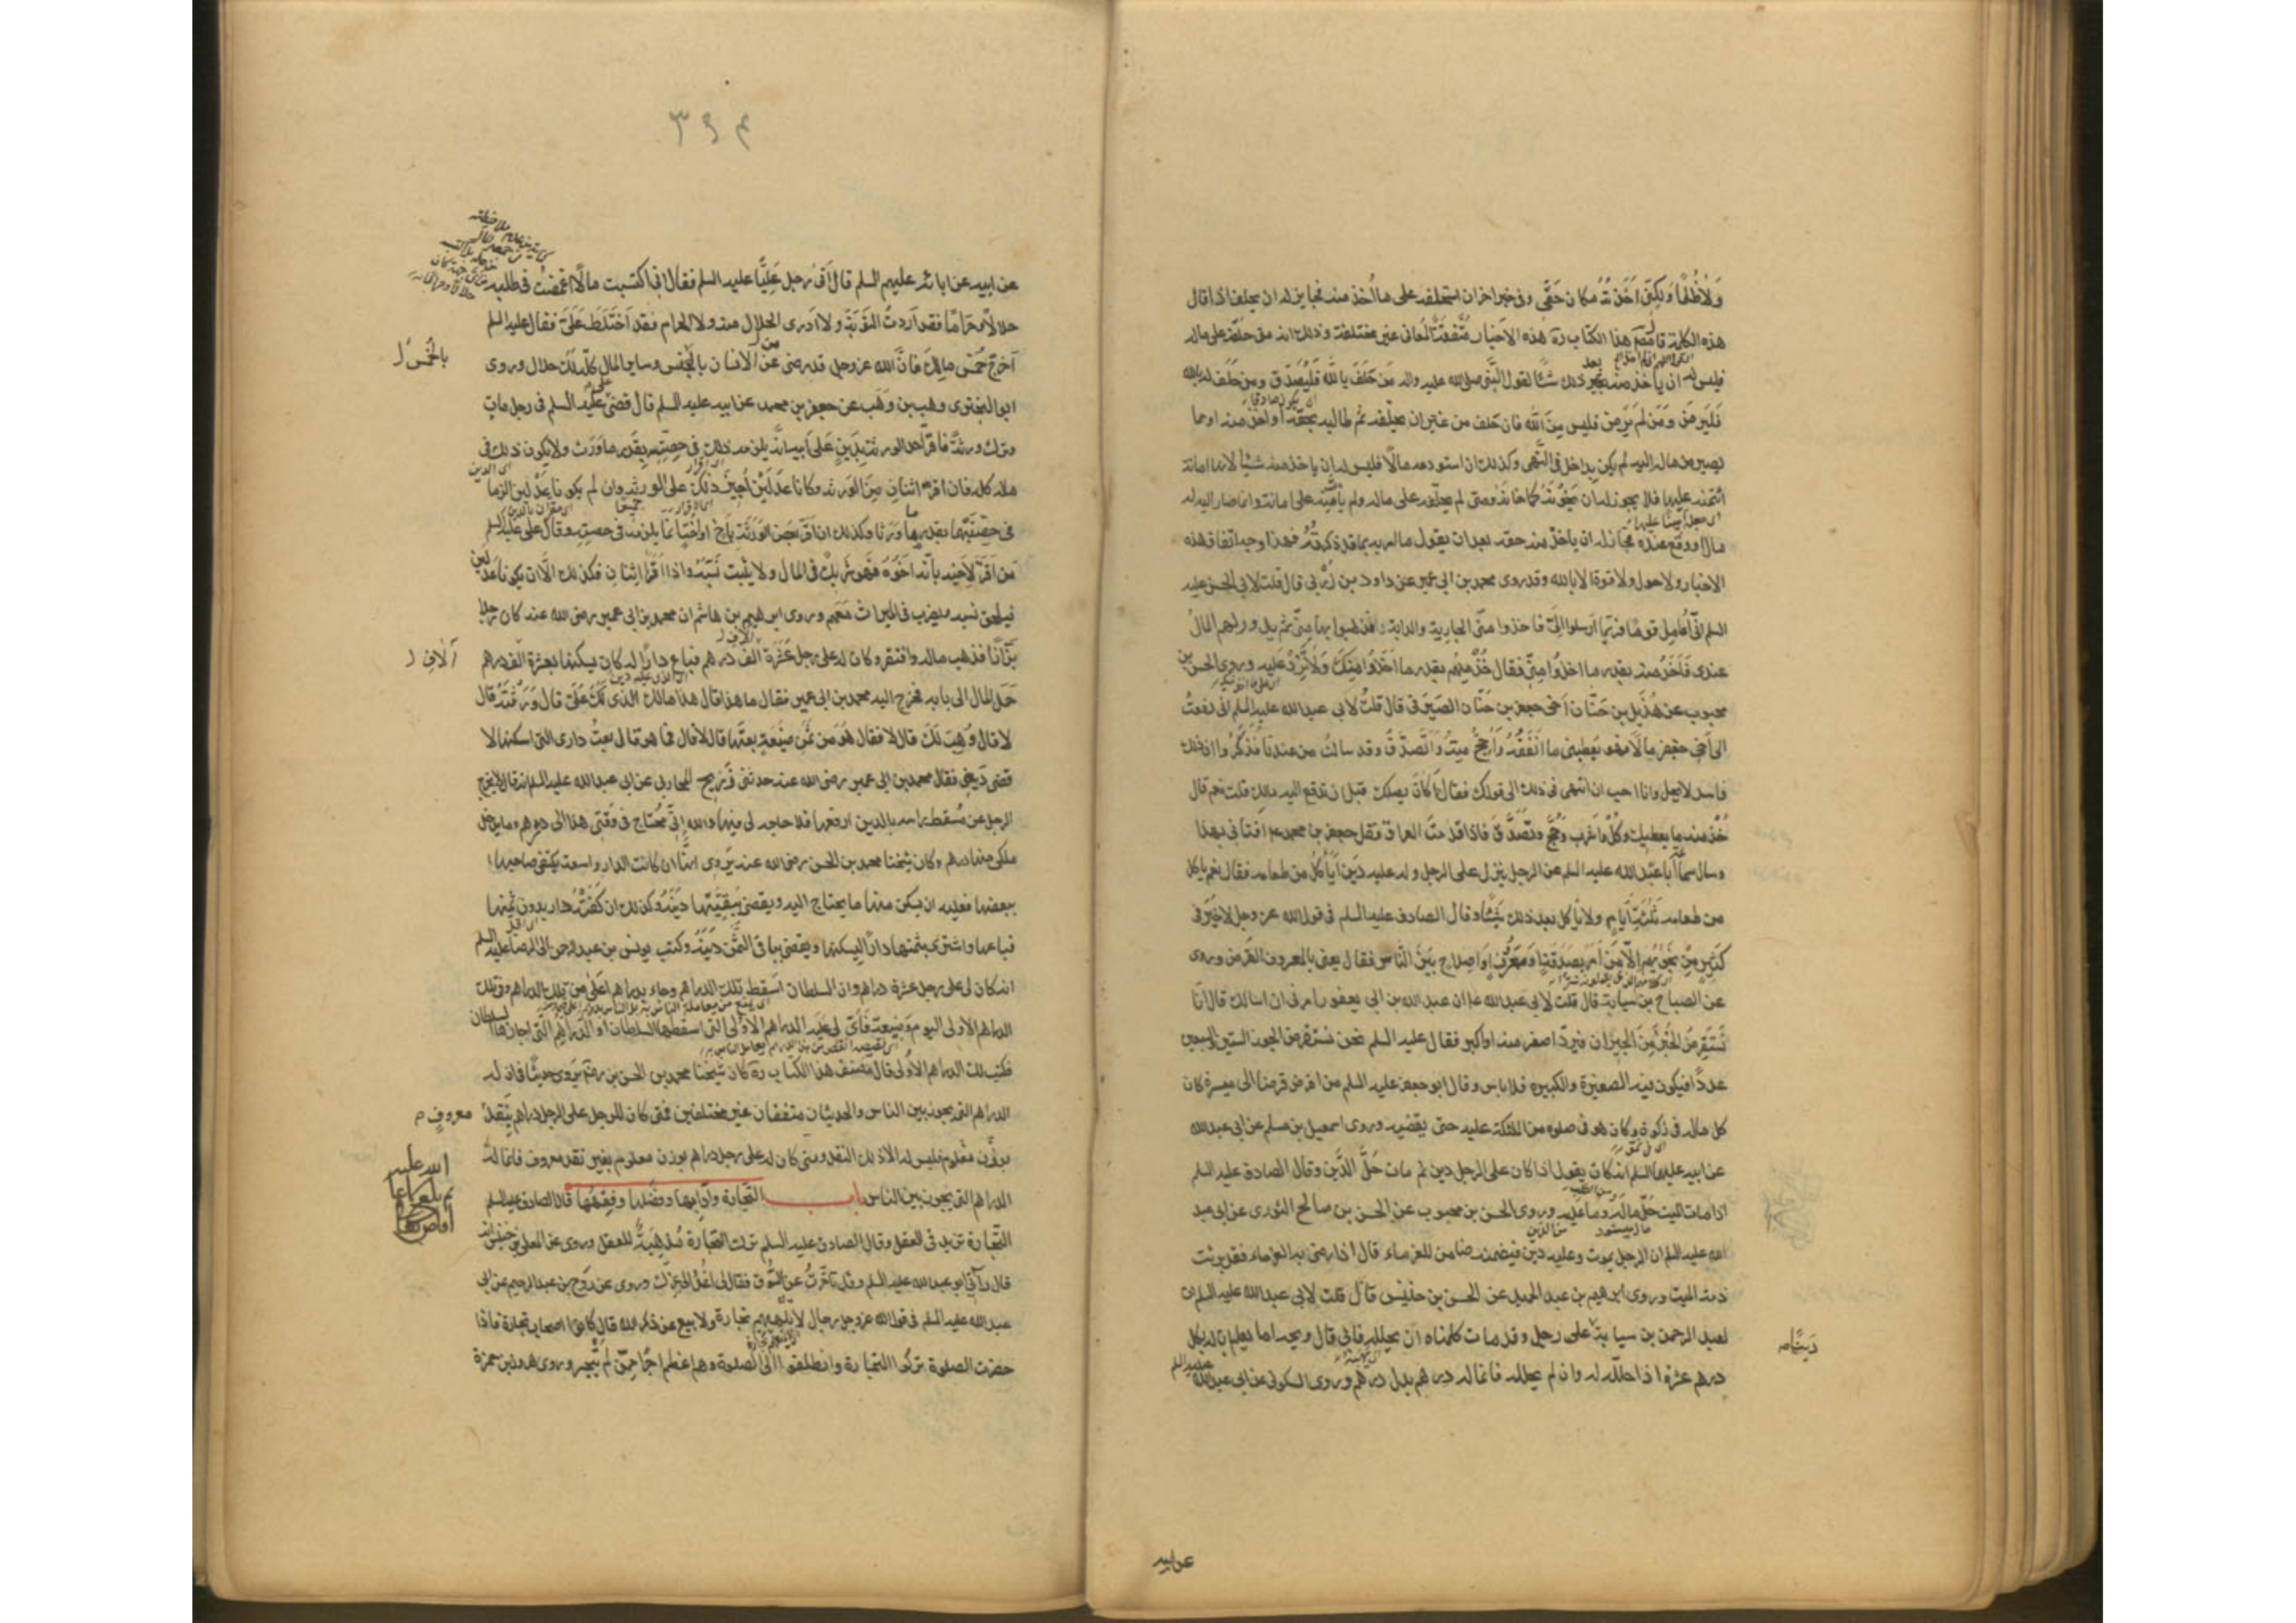 ولا ظلما ولكني اخذته مكان حقي وفي خبر اخر ان استحلفه على ما اخذ منه فجايز له ان يحلف اذا قال
هذه الكلمة قال مصنف هذا الكتاب ره هذه الاخبار متفقة المعاني غير مختلفة وذلك انه متى حلفه على ماله
فليس له ان ياخذ منه بعد ذلك شيئا لقول النبي صلى الله عليه واله من حلف بالله فليصدق ومن حلف له بالله
فليرض ومن لم يرض فليس من الله فان حلف من غير ان يحلفه ثم طالبه بحقه او اخذ منه او مما
يصير من ماله اليه لم يكن بداخل في النهي وكذلك ان استودعه مالا فليس له ان ياخذ منه شيئا لانها امانة
ائتمنه عليها فلا يجوز له ان يخونه كما خانه ومتى لم يحلفه على ماله ولم ياتمنه على امانة وانما صار اليه له
مال او وقع عنده فجائز له ان ياخذ منه حقه بعد ان يقول ما امر به مما قد ذكرته فهذا وجه اتفاق هذه
الاخبار ولا حول ولا قوة الا بالله وقد روى محمد بن ابي عمير عن داود بن زربي قال قلت لابي الحسن عليه
السلم اني اعامل قوما فربما ارسلوا الي فاخذوا مني الجارية والدابة فذهبوا بها مني ثم يدور لهم المال
عندي فاخذ منه بقدر ما اخذوا مني فقال خذ منهم بقدر ما اخذوا منك ولا تزد عليه وروى الحسن بن
محبوب عن هذيل بن حنان اخي جعفر بن حنان الصيرفي قال قلت لابي عبد الله عليه السلم اني دفعت
الى اخي جعفر مالا فهو يعطيني ما انفقه واحج منه واتصدق وقد سالت من عندنا فذكروا ان ذلك
فاسد لا يحل وانا احب ان انتهي في ذلك الى قولك فقال اكان يصلك قبل ان تدفع اليه مالك قلت نعم قال
خذ منه ما يعطيك وكل واشرب وحج وتصدق فاذا قدمت العراق فقل جعفر بن محمد ع افتاني بهذا
وسال سماعة ابا عبد الله عليه السلم عن الرجل ينزل على الرجل وله عليه دين اياكل من طعامه فقال نعم ياكل
من طعامه ثلثة ايام ولا ياكل بعد ذلك شيئا وقال الصادق عليه السلم في قول الله عز وجل لا خير في
كثير من نجويهم الا من امر بصدقة او معروف او اصلاح بين الناس فقال يعني بالمعروف القرض وروى
عن الصباح بن سيابة قال قلت لابي عبد الله ع ان عبد الله بن ابي يعفور امرني ان اسالك قال انا
نستقرض الخبز من الجيران فيرد اصغر منه او اكبر فقال عليه السلم نحن نستقرض الجوز الستين والسبعين
عددا فيكون فيه الصغيرة والكبيرة فلا باس وقال ابو جعفر عليه السلم من اقرض قرضا الى ميسرة كان
كل ماله في زكوة وكان هو في صلوة من الملئكة عليه حتى يقضيه وروى اسمعيل بن مسلم عن ابي عبد الله
عن ابيه عليهما السلم انه كان يقول اذا كان على الرجل دين ثم مات حل الدين وقال الصادق عليه السلم
اذا مات الميت حل ماله وما عليه وروى الحسن بن محبوب عن الحسن بن صالح الثوري عن ابي عبد
الله عليه السلم ان الرجل يموت وعليه دين فيضمنه ضامن للغرماء قال اذا رضي به الغرماء فقد برئت
ذمة الميت وروى ابرهيم بن عبد الحميد عن الحسن بن خنيس قال قلت لابي عبد الله عليه السلم ان
لعبد الرحمن بن سيابة على رجل وقد مات كلمناه ان يحلله فابى قال ويحه اما يعلم ان له بكل
درهم عشرة اذا حلله له وان لم يحلله فانما له درهم بدل درهم وروى السكوني عن ابي عبد الله عليه السلم
دينا
عن ابيه
٣٩٤
عن ابيه عن ابائه عليهم السلم قال اتى رجل عليا عليه السلم فقال اني اكتسبت مالا اغمضت في طلبه
حلالا وحراما فقد اردت التوبة ولا ادري الحلال منه ولا الحرام فقد اختلط علي فقال عليه السلم
اخرج خمس مالك فان الله عز وجل قد رضي من الانسان بالخمس وساير المال كله لك حلال وروى
بالخمس ل
ابو البختري وهب بن وهب عن جعفر بن محمد عن ابيه عليه السلم قال قضى علي عليه السلم في رجل مات
وترك ورثة فاقر احد الورثة بدين على ابيه انه يلزمه ذلك في حصته بقدر ما ورث ولا يكون ذلك في
ماله كله فان اقر اثنان من الورثة وكانا عدلين اجيز ذلك على الورثة وان لم يكونا عدلين الزما
في حصتهما بقدر ما ورثا وكذلك ان اقر بعض الورثة باخ او اخت انما يلزمه في حصته وقال علي عليه السلم
من اقر لاخيه بانه اخوه فهو شريك في المال ولا يثبت نسبه واذا اقر اثنان فكذلك الا ان يكونا عدلين
فيلحق نسبه ويضرب في الميراث معهم وروى ابرهيم بن هاشم ان محمد بن ابي عمير رضي الله عنه كان رجلا
بزازا فذهب ماله وافتقر وكان له على رجل عشرة الف درهم فباع دارا له كان يسكنها بعشرة الف درهم
آلاف ل
حمل المال الى بابه فخرج اليه محمد بن ابي عمير فقال ما هذا قال هذا مالك الذي لك علي قال ورثته قال
لا قال وهب لك قال لا فقال هو من ثمن ضيعة بعتها قال لا قال فما هو قال بعت داري التي اسكنها لا
قضي ديني فقال محمد بن ابي عمير رضي الله عنه حدثني ذريح المحاربي عن ابي عبد الله عليه السلم انه قال لا يخرج
الرجل عن مسقط راسه بالدين ارفعها فلا حاجة لي فيها والله اني محتاج في وقتي هذا الى درهم وما يدخل
ملكي منها درهم وكان شيخنا محمد بن الحسن رضي الله عنه يروي انها ان كانت الدار واسعة يكتفي صاحبها
ببعضها فعليه ان يسكن منها ما يحتاج اليه ويقضي ببقيتها دينه وكذلك ان كفته دار بدون ثمنها
فباعها واشترى بثمنها دارا ليسكنها ويقضي بباقي الثمن دينه وكتب يونس بن عبد الرحمن الى الرضا عليه السلم
انه كان لي على رجل عشرة دراهم وان السلطان اسقط تلك الدراهم وجاء بدراهم اعلى من تلك الدراهم وفي تلك
الدراهم الاولى اليوم وضيعة فاي لي عليه الدراهم الاولى التي اسقطها السلطان او الدراهم التي اجازها السلطان
فكتب لك الدراهم الاولى قال مصنف هذا الكتاب ره كان شيخنا محمد بن الحسن رضه يروي حديثا فان له
الدراهم التي يجوز بين الناس والحديثان متفقان غير مختلفين فمتى كان للرجل على الرجل دراهم بنقد
معروف
بوزن معلوم فليس له الا ذلك النقد ومتى كان له على رجل دراهم بوزن معلوم بغير نقد معروف فانما له
الدراهم التي يجوز بين الناس باب التجارة وآدابها وفضلها وفقهها قال الصادق عليه السلم
التجارة تزيد في العقل وقال الصادق عليه السلم ترك التجارة مذهبة للعقل وروى عن المعلى بن خنيس انه
قال رآني ابو عبد الله عليه السلم وقد تاخرت عن السوق فقال لي اغد الى عزك وروى عن روح بن عبد الرحيم عن ابي
عبد الله عليه السلم في قول الله عز وجل رجال لا تلهيهم تجارة ولا بيع عن ذكر الله قال كانوا اصحاب تجارة فاذا
حضرت الصلوة تركوا التجارة وانطلقوا الى الصلوة وهم اعظم اجرا ممن لم يتجر وروى هرون بن حمزة